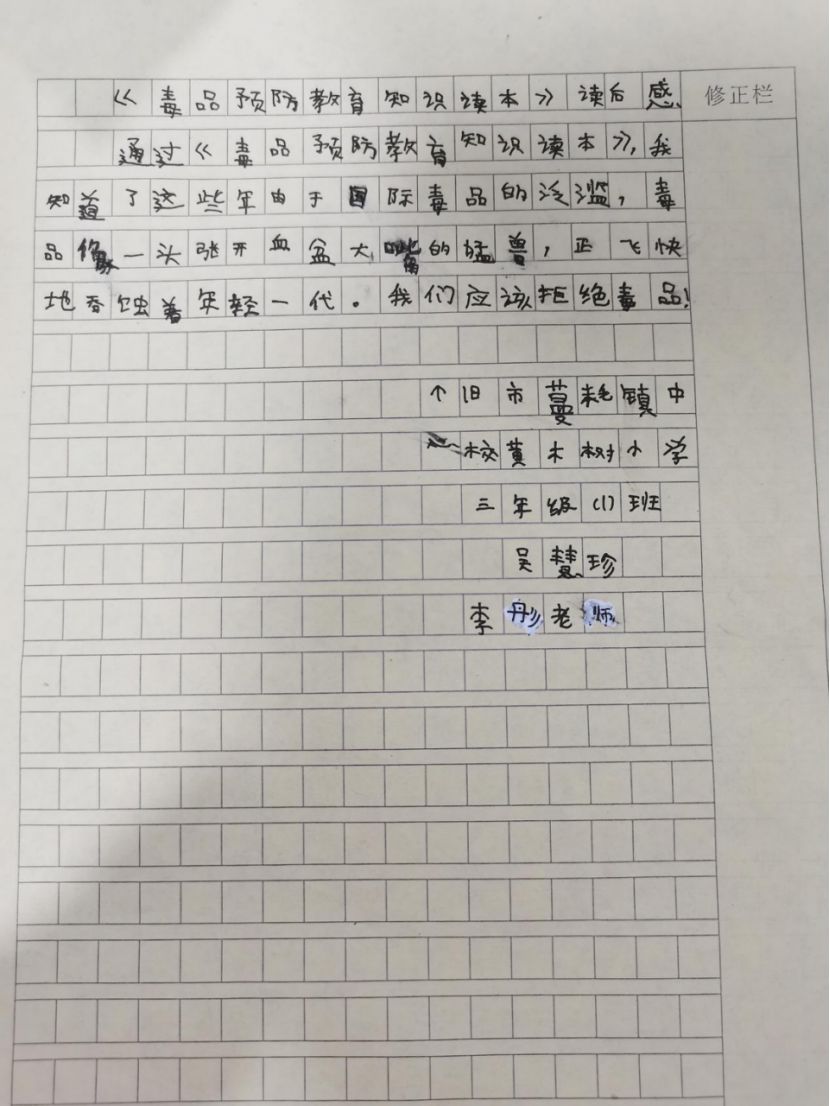 《毒品预防教育知识读本》读后感 修正栏
通过《毒品预防教育知识读本》,我
知道了这些年由于国际毒品的泛滥,毒
品像一头张开血盆大嘴的猛兽,正飞快
地吞蚀着年轻一代。我们应该拒绝毒品!
个旧市蔓耗镇中
校黄木树小学
三年级(1)班
吴慧珍
李彤老师